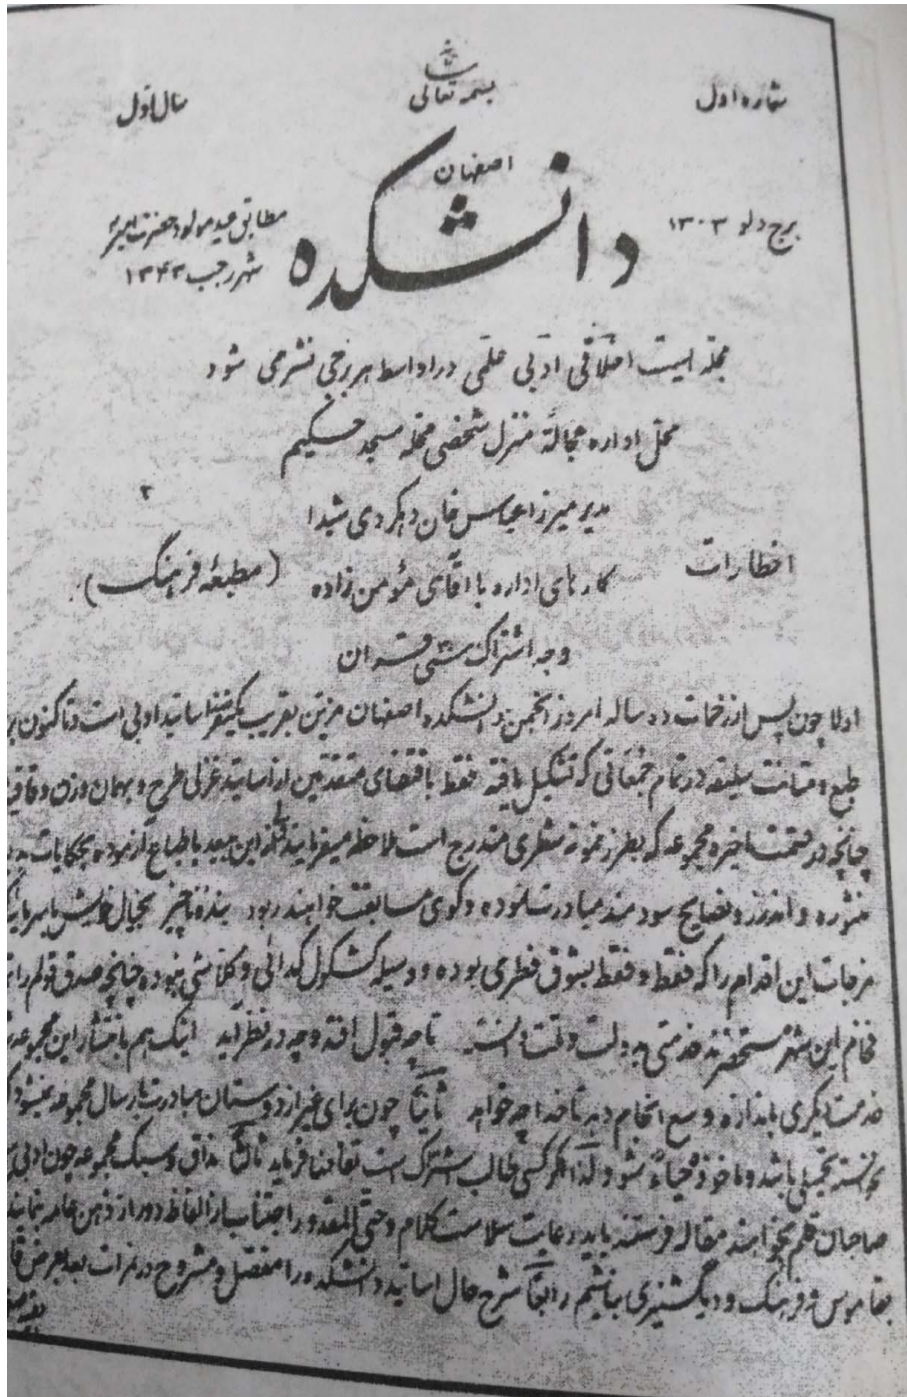 شماره اول
بسمه تعالی
سال اول
اصفهان
برج دلو ۱۳۰۳
دانشکده
مطابق عید مولود حضرت امیر
شهر رجب ۱۳۴۳
مجله ایست اخلاقی ادبی علمی در اواسط هر برجی نشر می شود
محل اداره عجالة منزل شخصی محله مسجد حکیم
مدیر میرزا عباس خان دهکردی شیدا
اخطارات
کارهای اداره با آقای مؤمن زاده
(مطبعهٔ فرهنگ)
وجه اشتراک شش قران
اولا چون پس از زحمات ده ساله امروز انجمن دانشکده اصفهان مزین بقریب یکنفر اساتید ادبی است و تاکنون
طبع و متانت سلیقه در تمام جمعاتی که تشکیل یافته فقط باقتضای متقدمین از اساتید غزلی طرح و بهمان وزن و قافیه
چنانچه در قسمت اخیره مجموعه که بطرز نمونه سطری مندرج است ملاحظه میفرمایید من بعد باطباع آزموده بحکایات
منثوره و اندرز و نصایح سودمند مبادرت نموده و گوی مسابقت خواهند ربود بنده ناچیز بخیال خویش
مزجات این اقدام را که فقط و فقط بشوق فطری بوده و وسیله کشکول گدائی و کلاشی نبوده چنانچه صدق قولم را
فخام این شهر مستحضرند خدمتی بدولت و ملت دانسته تا چه قبول افتد و چه در نظر آید اینک هم بانتشار این مجموعه
خدمت دیگری باندازه وسع انجام دهد تا خدا چه خواهد ثانیاً چون برای غیر از دوستان مبادرت بارسال مجموعه نمیشود
توانسته تحمیلی باشد و ماخوذ بحیاء نشود لذا اگر کسی طالب اشتراک است تقاضا فرماید ثالثاً مذاق و سبک مجموعه چون ادبی
صاحبان قلم بخواهند مقاله فرستند باید رعایت سلامت کلام و حتی المقدور اجتناب از الفاظ دور از ذهن عامه نمایند
بقاموس و فرهنگ و دیکسنری نباشیم رابعاً شرح حال اساتید دانشکده را مفصل و مشروح در نمرات بعد بعرض